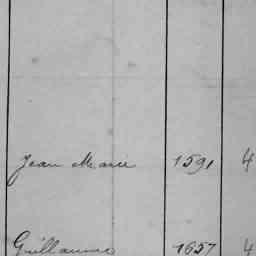 Jean Marie 1591 4
Guillaume 1657 4